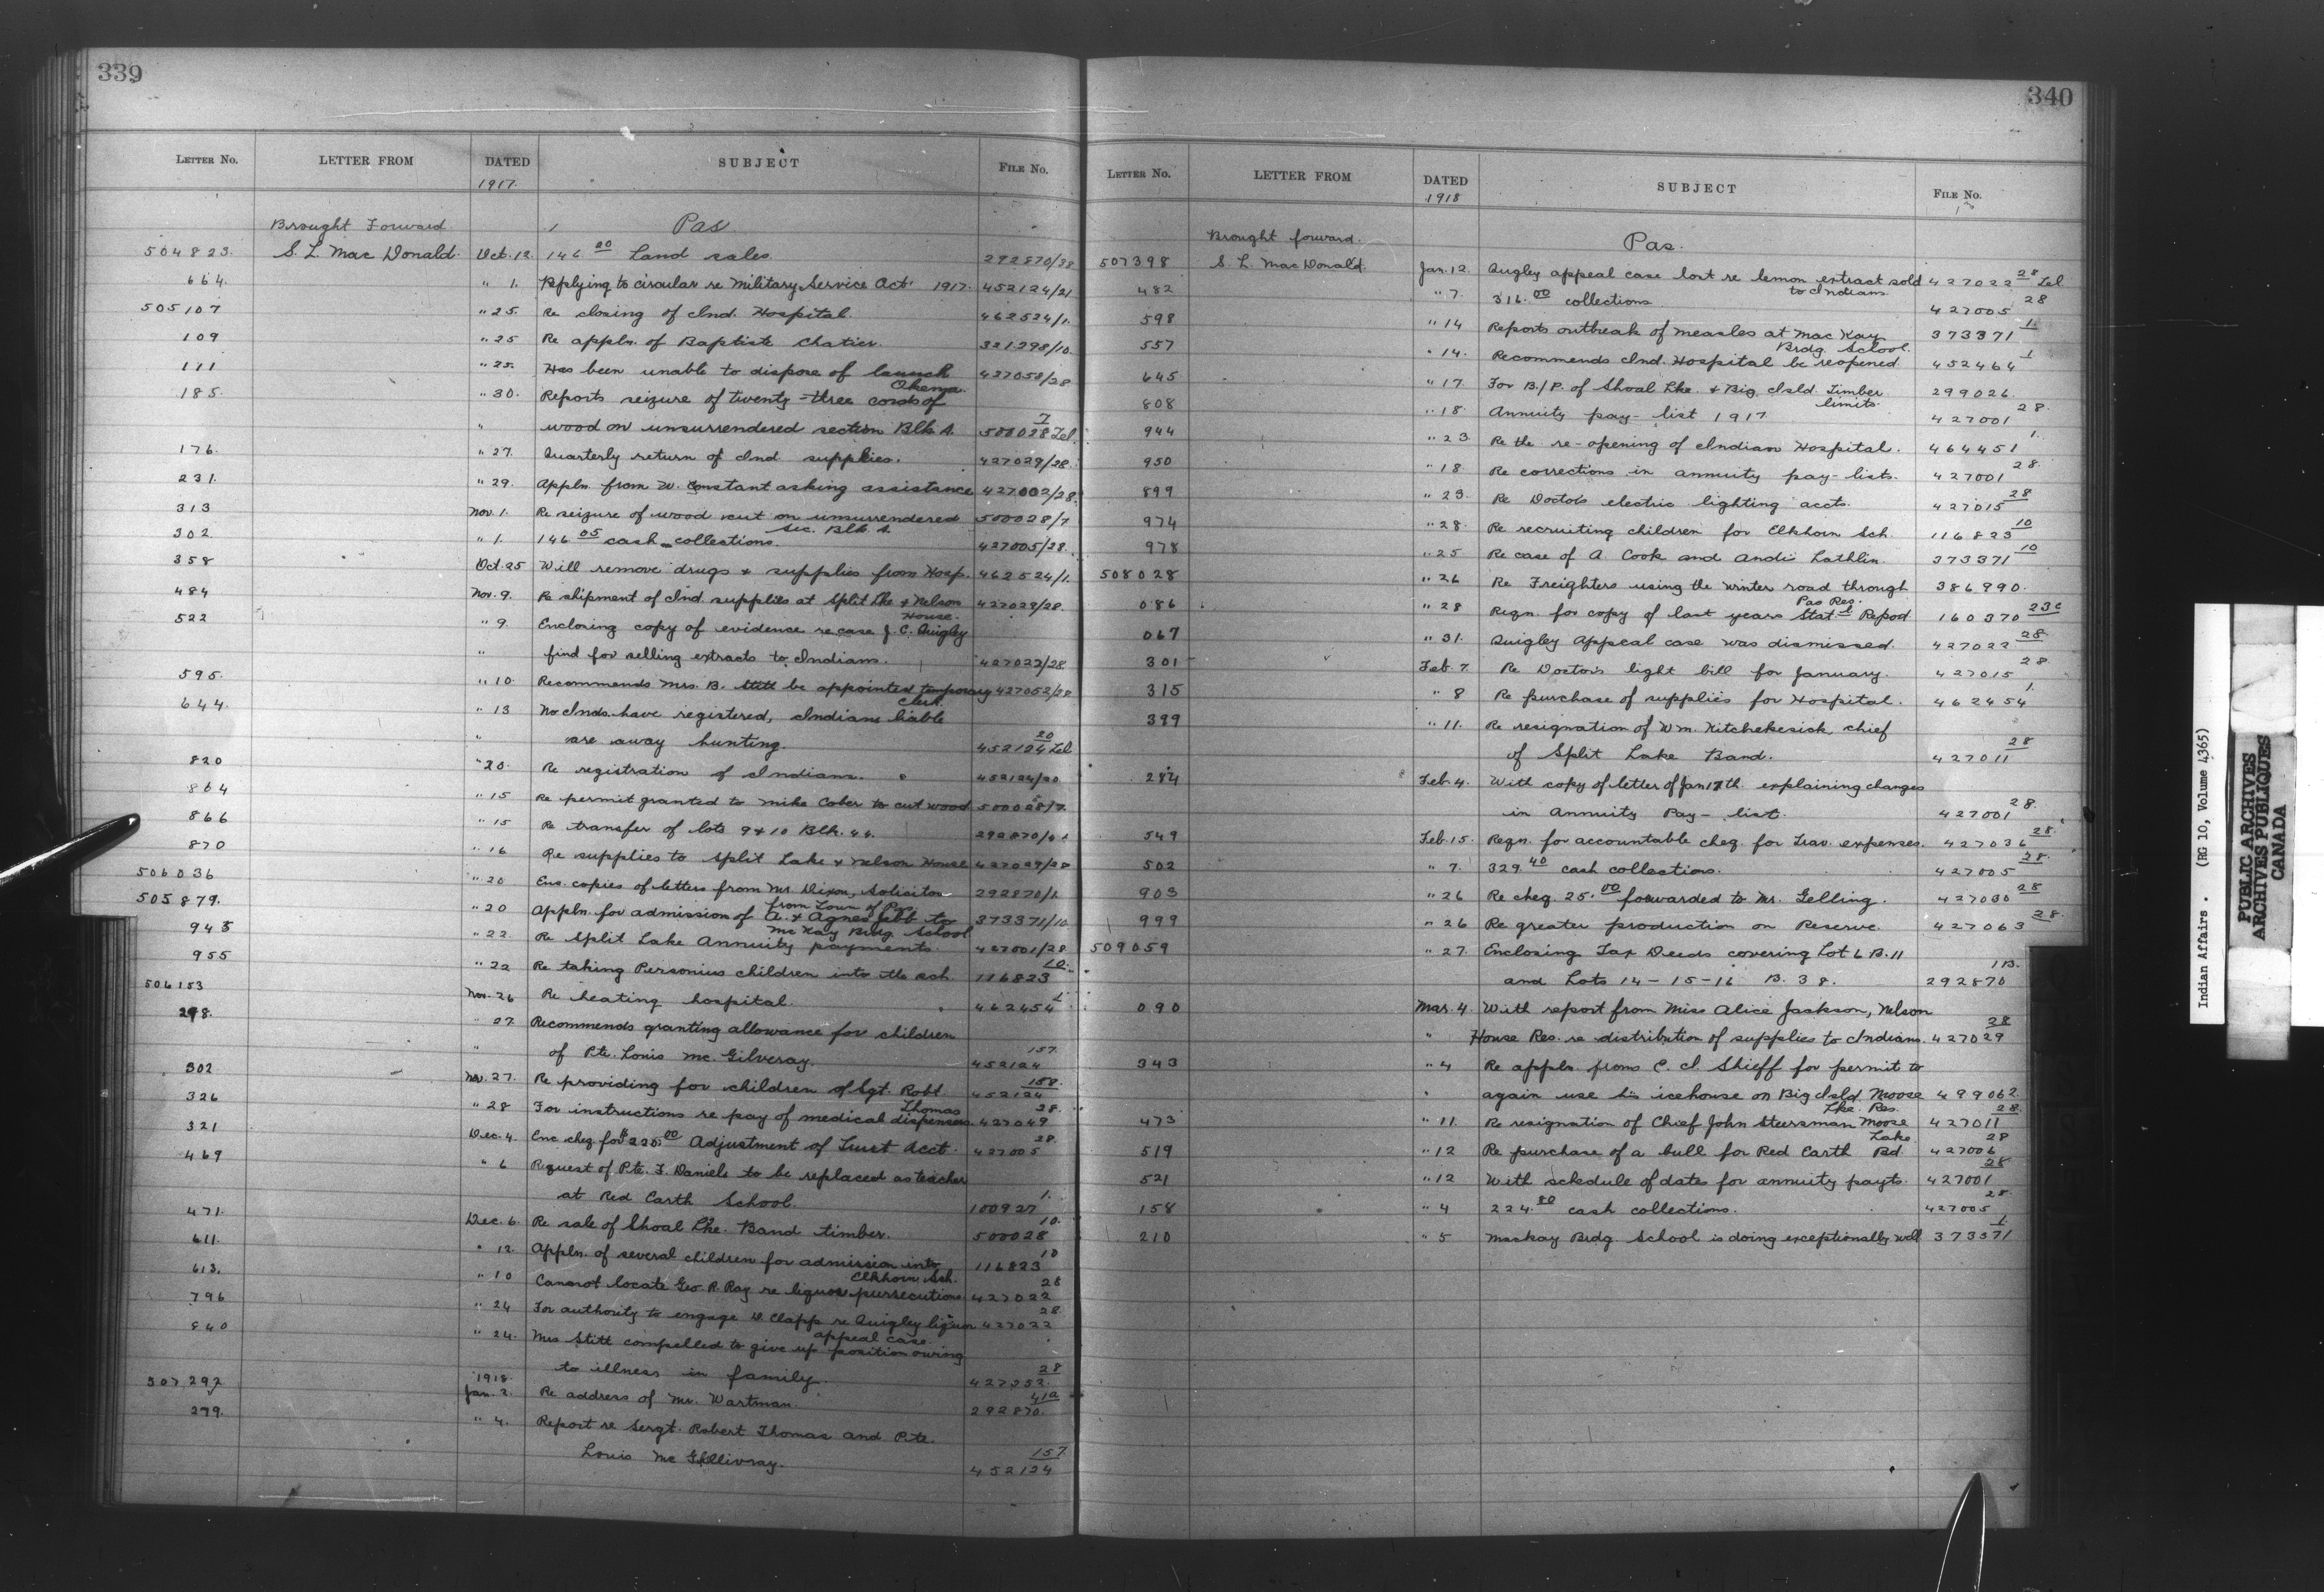 339
LETTER No. LETTER FROM DATED SUBJECT FILE No.
1917.
Brought Forward Pas
504823. S. L. Mac Donald. Oct. 12. 146 00 Land sales. 292870/38
664. " 1. Replying to circular re Military Service Act 1917. 452124/21
505107 " 25. Re closing of Ind. Hospital. 462524/1.
109 " 25 Re appln. of Baptiste Chatier. 321298/10.
111 " 25. Has been unable to dispose of launch 427058/28
Okema.
185. " 30. Reports seizure of twenty-three cords of
" wood on unsurrendered section Blk A. 500028 7 Lel
176. " 27. Quarterly return of Ind supplies. 427029/28.
231. " 29. Appln. from W. Constant asking assistance 427002/28.
313 Nov. 1. Re seizure of wood cut on unsurrendered 500028/7.
sec. Blk A.
302 " 1. 146 05 cash collections. 427005/28.
358 Oct. 25 Will remove drugs & supplies from Hosp. 462524/1.
484 Nov. 9. Re shipment of Ind. supplies at Split Lke & Nelson 427029/28.
House.
522 " 9. Enclosing copy of evidence re case J. C. Quigley
" find for selling extracts to Indians. 427022/28
595. " 10. Recommends Mrs. B. Stitt be appointed temporary 427052/28
Clerk.
644. " 13 No Inds. have registered, Indians liable
" are away hunting. 452124 20 Lel
820 " 20. Re registration of Indians. 452124/20
864 " 15 Re permit granted to Mike Cober to cut wood 500028/7.
866 " 15 Re transfer of lots 9 & 10 Blk. 44. 292870/
870 " 16 Re supplies to Split Lake & Nelson House 427029/28
506036 " 20 Enc. copies of letters from Mr. Dixon, Solicitor 292870/1.
from Town of Pas
505879. " 20 Appln. for admission of A. & Agnes Jebb to 373371/10.
McKay Brdg. School
945 " 22. Re Split Lake Annuity payments. 427001/28
955 " 22 Re taking Personius children into the sch. 116823 10.
506153 Nov. 26 Re heating hospital. 462454 1.
298. " 27. Recommends granting allowance for children
" of Pte. Louis Mc. Gilveray. 452124 157.
302 Nov. 27. Re providing for children of Sgt. Robt. 452124 158.
Thomas
326 " 28 For instructions re pay of medical dispensers. 427049 28.
321 Dec. 4. Enc cheq. for $225.00 Adjustment of Trust Acct. 427005 28.
469 " 6 Request of Pte. F. Daniels to be replaced as teacher
at Red Earth School. 100927 1.
471. Dec. 6. Re sale of Shoal Lke. Band timber. 500028 10.
611. " 12. Appln. of several children for admission into 116823 10
Elkhorn Sch.
613. " 10 Cannot locate Geo. R. Ray re liquor pursecutions 427022 28
796 " 24 For authority to engage D. Clapp re Quigley liquor 427022 28.
appeal case.
840 " 24. Mrs Stitt compelled to give up position owing
to illness in family. 427052. 28
507292 1918. Jan. 2. Re address of Mr. Wartman. 292870. 41a
299. " 4. Report re Sergt. Robert Thomas and Pte.
Louis Mc Gillivray. 452124 157
340
LETTER No. LETTER FROM DATED SUBJECT FILE No.
1918
Brought forward. Pas.
507398 S. L. Mac Donald. Jan. 12. Quigley appeal case lost re lemon extract sold 427022 28 Lel
to Indians.
482 " 7. 316.00 collections 427005 28
598 " 14 Reports outbreak of measles at Mac Kay 373371 1.
Brdg. School.
557 " 14. Recommends Ind. Hospital be reopened 452464 1
645 " 17. For B/P. of Shoal Lke. & Big Isld. Timber 299026.
limits.
808 " 18. Annuity pay-list 1917. 427001 28.
944 " 23. Re the re-opening of Indian Hospital. 464451 1.
950 " 18. Re corrections in annuity pay-lists. 427001 28.
899 " 23. Re Doctors electric lighting accts. 427015 28
974 " 28. Re recruiting children for Elkhorn Sch. 116823 10
978 " 25 Re case of A. Cook and Andi Lathlin. 373371 10
508028 " 26 Re Freighters using the winter road through 386990.
Pas Res.
086 " 28 Reqn. for copy of last years Stat'l Report 160370 23c
067 " 31. Quigley Appeal case was dismissed. 427022 28.
301 Feb. 7. Re Doctors light bill for January. 427015 28.
315 " 8 Re purchase of supplies for Hospital. 462454 1.
399 " 11. Re resignation of Wm. Kitchekesick, chief
of Split Lake Band. 427011 28
284 Feb. 4. With copy of letter of Jan 17th. explaining changes
in Annuity Pay-list. 427001 28.
549 Feb. 15. Reqn. for accountable cheq. for Trav. expenses. 427036 28.
502 " 7. 329.40 cash collections. 427005 28.
903 " 26 Re cheq. 25.00 forwarded to Mr. Gelling. 427030 28
999 " 26 Re greater production on Reserve. 427063 28.
509059 " 27. Enclosing Tax Deeds covering Lot 6 B. 11
and Lots 14-15-16 B. 38. 292870 1B.
090 Mar. 4. With report from Miss Alice Jackson, Nelson
" House Res. re distribution of supplies to Indians. 427029 28
343 " 4 Re appln. from C. I Shieff for permit to
" again use his icehouse on Big Isld. Moose 499062.
Lke. Res.
473 " 11. Re resignation of Chief John Steersman Moose 427011 28.
Lake.
519 " 12 Re purchase of a bull for Red Earth Bd. 427006 28
521 " 12 With schedule of dates for annuity payts. 427001 28.
158 " 4 224.80 cash collections. 427005 28.
210 " 5 Mackay Brdg. School is doing exceptionally well 373371 1.
Indian Affairs. (RG 10, Volume 4365)
PUBLIC ARCHIVES
ARCHIVES PUBLIQUES
CANADA